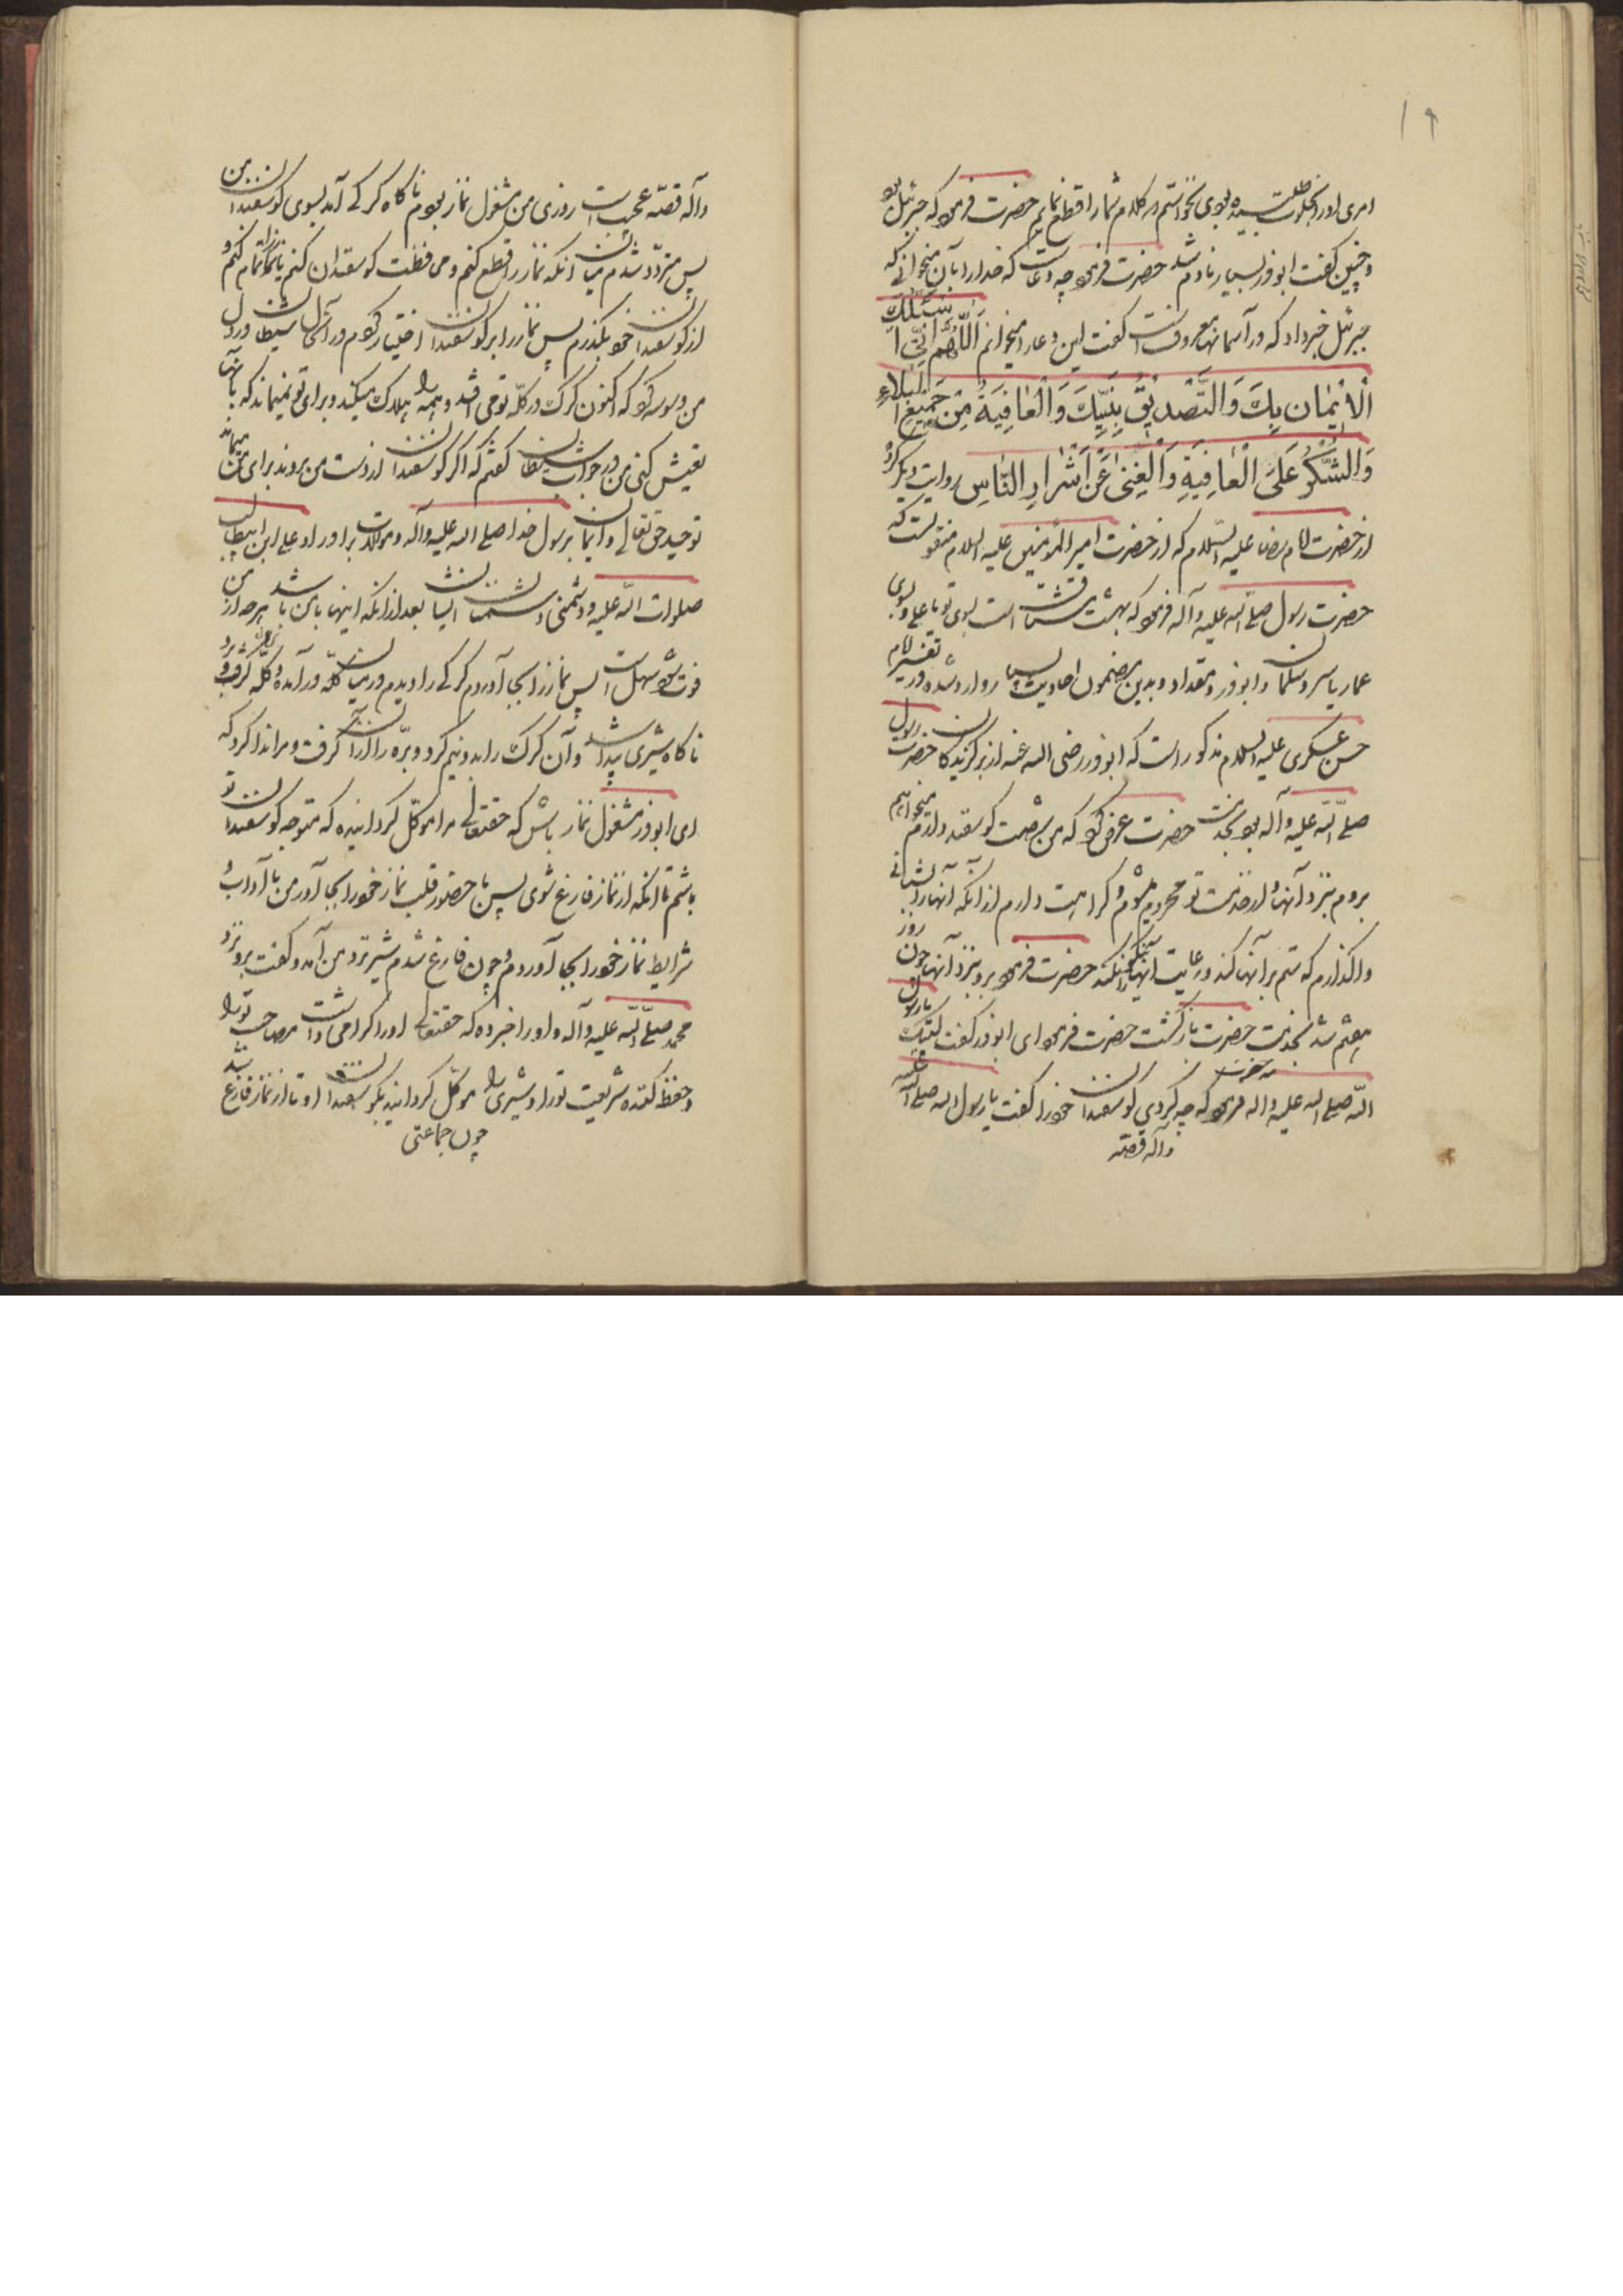 ۱۹
امری او را بخلوت طلبیده بودی نخواستم که کلام شما را قطع نمایم حضرت فرمود که جبرئیل بود
و چنین گفت ابوذر بسیار نادم شد حضرت فرمود چه دعاست که خدا را بآن میخوانی که
جبرئیل خبر داد که در آسمانها معروفست گفت این دعا را میخوانم اَللّٰهُمَّ اِنّی اَسْئَلُكَ
الْاٖیمٰانَ بِكَ وَالتَّصْدٖیقَ بِنَبِیِّكَ وَالْعٰافِیَةَ مِنْ جَمٖیعِ الْبَلاءِ
وَالشُّكْرَ عَلَی الْعٰافِیَةِ وَالْغِنیٰ عَنْ اَشْرٰارِ النّٰاسِ روایت دیگر کرده
از حضرت امام رضا علیه السّلام که از حضرت امیر المؤمنین علیه السلام منقولست که
حضرت رسول صلّے اللّه علیه وآله فرمود که بهشت مشتاقست بسوی تو یا علی و بسوی
عمار یاسر و سلمان و ابوذر و مقداد و بدین مضمون احادیث بسیار وارد شده و در تفسیر امام
حسن عسکری علیه السلام مذکور است که ابوذر رضی اللّه عنه از برگزیدگان حضرت رسول
صلّے اللّه علیه وآله بود بخدمت حضرت عرض کرد که من شصت گوسفند دارم نمیخواهم
بروم بنزد آنها و از خدمت تو محروم شوم و کراهت دارم از آنکه آنها را بشبانی
واگذارم که ستم بر آنها کند و رعایت آنها نیکو نکند حضرت فرمود برو بنزد آنها چون روز
هفتم شد بخدمت حضرت بازگشت حضرت فرمود ای ابوذر گفت لبّیك یا رسول
اللّه صلے اللّه علیه واله حضرت فرمود که چه کردی گوسفندان خود را گفت یا رسول اللّه صلے اللّه علیه
وآله قصّه
وآله قصّه عجیبست روزی من مشغول نماز بودم ناگاه گرگی آمد بسوی گوسفندان من
پس متردّد شدم میان آنکه نماز را قطع کنم و محافظت گوسفندان کنم یا نماز را تمام کنم و
از گوسفندان خود بگذرم پس نماز را بر گوسفندان اختیار کردم در آنحال شیطان در دل
من وسوسه کرد که اکنون گرگ در گلّه تو می افتد و همه را هلاک میکند و برای تو نمیماند که بآنها
تعیش کنی من در جواب شیطان گفتم که اگر گوسفندان از دست من بروند برای من میماند
توحید حق تعالی و ایمان برسول خدا صلے اللّه علیه وآله و موالات برادر او علی ابن ابیطالب
صلوات اللّه علیه و دشمنی دشمنان ایشان بعد از آنکه اینها با من باشد هرچه از من
فوت شود سهلست پس نماز را بجا آوردم گرگی را دیدم در میان گلّه در آمد و گلّه گرفت و برد
ناگاه شیری پیدا شد و آن گرگ را بدو نیم کرد و برّه را از آن گرفت و مرا ندا کرد که
ای ابوذر مشغول نماز باش که حقتعالی مرا موکّل گردانیده که متوجه گوسفندان تو
باشم تا آنکه از نماز فارغ شوی پس با حضور قلب نماز خود را بجا آور من با آداب
شرایط نماز خود را بجا آوردم و چون فارغ شدم شیر نزد من آمد و گفت برو نزد
محمّد صلّے اللّه علیه وآله و او را خبر ده که حقتعالی او را گرامی داشت مصاحب ترا
و حفظ کننده شریعت تورا و شیری را موکّل گردانید بگوسفندان او تا از نماز فارغ شد
چون جماعتی